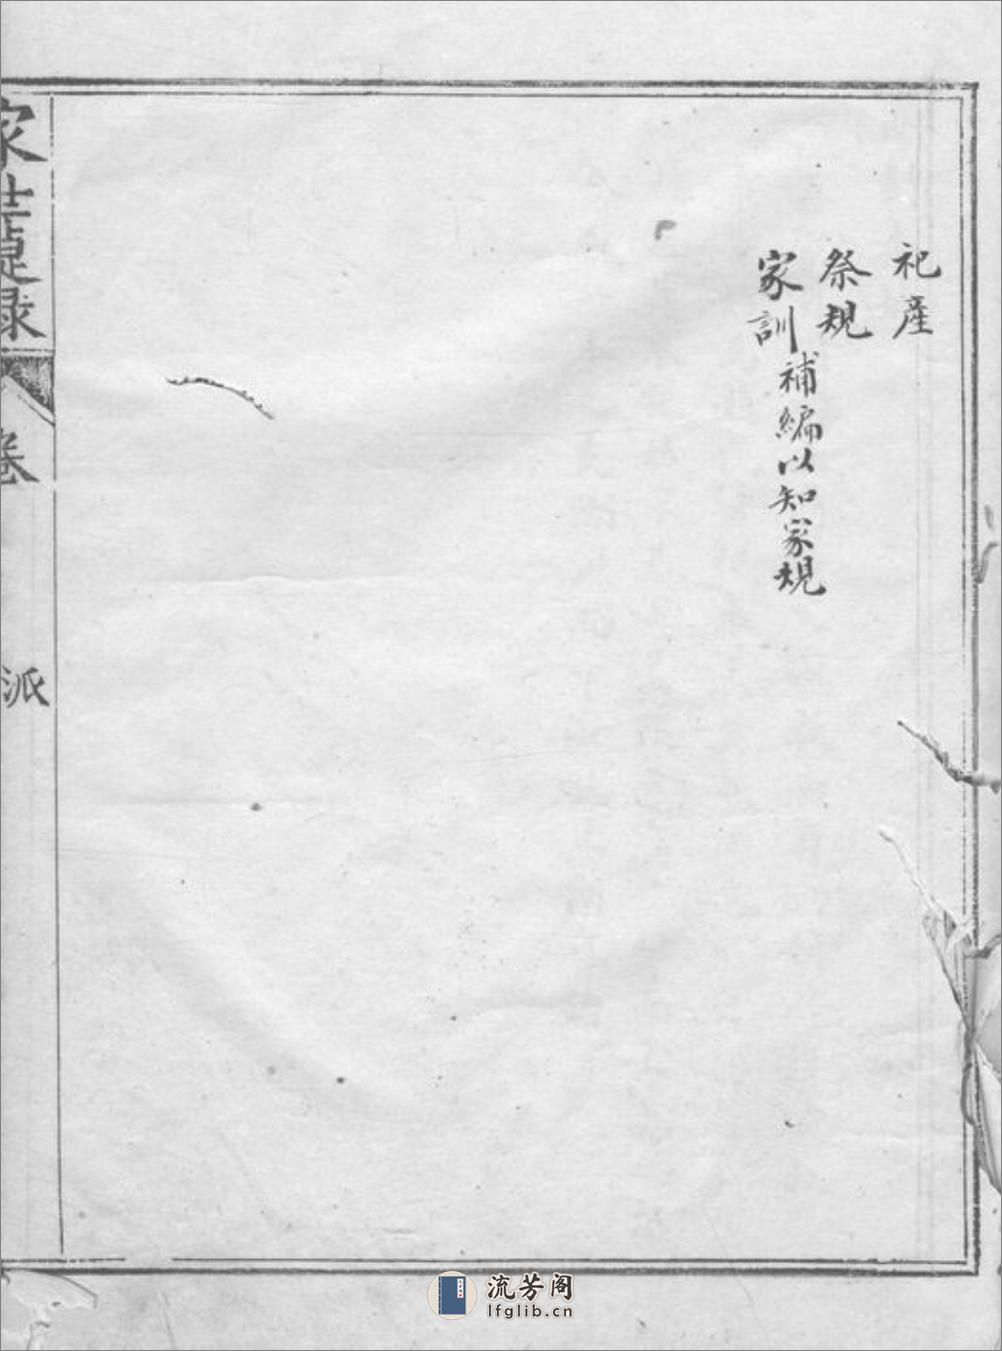 祀産
祭規
家訓補編以知家規
卷
派
流芳阁
lfglib.cn